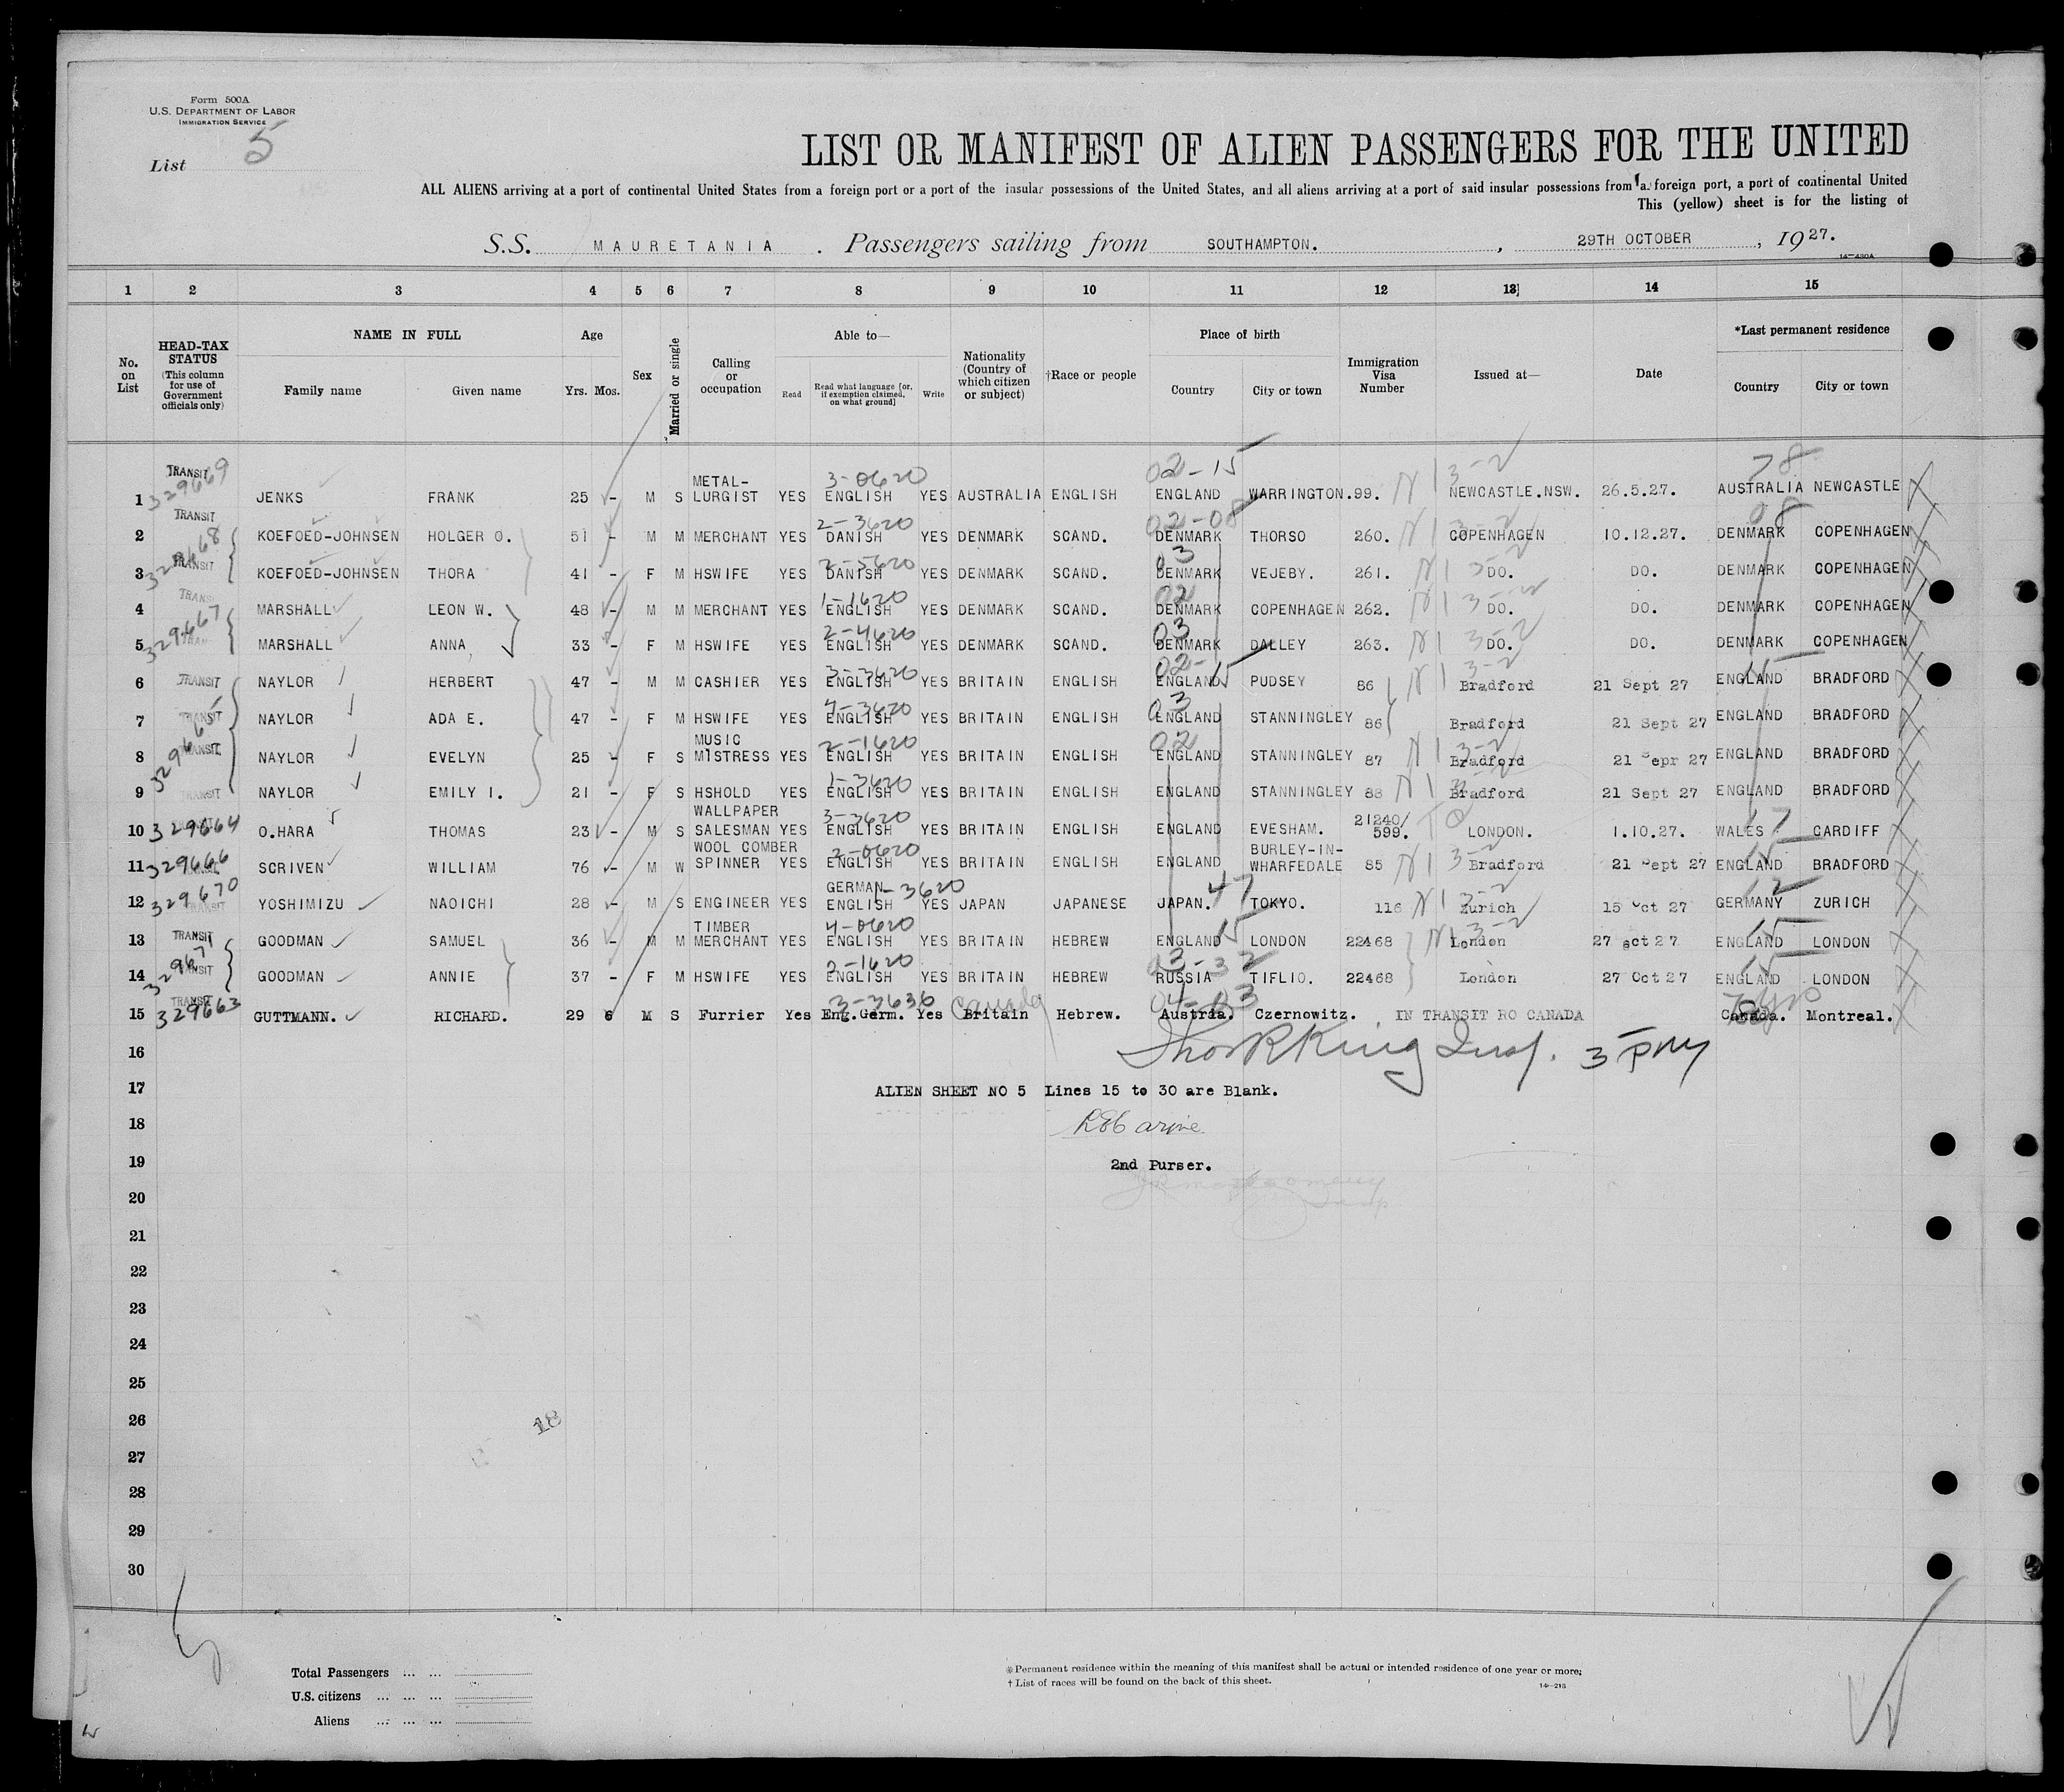 Form 500A
U.S. DEPARTMENT OF LABOR
IMMIGRATION SERVICE
List 5
LIST OR MANIFEST OF ALIEN PASSENGERS FOR THE UNITED
ALL ALIENS arriving at a port of continental United States from a foreign port or a port of the insular possessions of the United States, and all aliens arriving at a port of said insular possessions from a foreign port, a port of continental United
This (yellow) sheet is for the listing of
S.S. MAURETANIA. Passengers sailing from SOUTHAMPTON., 29TH OCTOBER, 1927.
14—430A
1 2 3 4 5 6 7 8 9 10 11 12 13 14 15
No. on List
HEAD-TAX STATUS (This column for use of Government officials only)
NAME IN FULL
Family name Given name
Age
Yrs. Mos.
Sex
Married or single
Calling or occupation
Able to—
Read
Read what language [or, if exemption claimed, on what ground]
Write
Nationality (Country of which citizen or subject)
†Race or people
Place of birth
Country City or town
Immigration Visa Number
Issued at—
Date
*Last permanent residence
Country City or town
1 TRANSIT 329669 JENKS FRANK 25 - M S METAL-LURGIST YES 3-0620 ENGLISH YES AUSTRALIA ENGLISH 02-15 ENGLAND WARRINGTON. 99. N I 3-2 NEWCASTLE.NSW. 26.5.27. 78 AUSTRALIA NEWCASTLE
2 TRANSIT 329668 KOEFOED-JOHNSEN HOLGER O. 51 - M M MERCHANT YES 2-3620 DANISH YES DENMARK SCAND. 02-08 DENMARK THORSO 260. N I 3-2 COPENHAGEN 10.12.27. 08 DENMARK COPENHAGEN
3 TRANSIT KOEFOED-JOHNSEN THORA 41 - F M HSWIFE YES 2-5620 DANISH YES DENMARK SCAND. 03 DENMARK VEJEBY. 261. N I 3-2 DO. DO. DENMARK COPENHAGEN
4 TRANSI 329667 MARSHALL LEON W. 48 - M M MERCHANT YES 1-1620 ENGLISH YES DENMARK SCAND. 02 DENMARK COPENHAGEN 262. N I 3-2 DO. DO. DENMARK COPENHAGEN
5 MARSHALL ANNA 33 - F M HSWIFE YES 2-4620 ENGLISH YES DENMARK SCAND. 03 DENMARK DALLEY 263. N I 3-2 DO. DO. DENMARK COPENHAGEN
6 TRANSIT NAYLOR HERBERT 47 - M M CASHIER YES 3-3620 ENGLISH YES BRITAIN ENGLISH 02-15 ENGLAND PUDSEY 86 N I 3-2 Bradford 21 Sept 27 15 ENGLAND BRADFORD
7 TRANSIT 329665 NAYLOR ADA E. 47 - F M HSWIFE YES 4-3620 ENGLISH YES BRITAIN ENGLISH 03 ENGLAND STANNINGLEY 86 Bradford 21 Sept 27 ENGLAND BRADFORD
8 TRANSIT NAYLOR EVELYN 25 - F S MUSIC MISTRESS YES 2-1620 ENGLISH YES BRITAIN ENGLISH 02 ENGLAND STANNINGLEY 87 N I 3-2 Bradford 21 Sepr 27 ENGLAND BRADFORD
9 TRANSIT NAYLOR EMILY I. 21 - F S HSHOLD YES 1-3620 ENGLISH YES BRITAIN ENGLISH ENGLAND STANNINGLEY 88 N I 3-2 Bradford 21 Sept 27 ENGLAND BRADFORD
10 329664 O.HARA THOMAS 23 - M S WALLPAPER SALESMAN YES 3-3620 ENGLISH YES BRITAIN ENGLISH ENGLAND EVESHAM. 21240/599. LONDON. 1.10.27. WALES 17 CARDIFF
11 329666 SCRIVEN WILLIAM 76 - M W WOOL COMBER SPINNER YES 2-0620 ENGLISH YES BRITAIN ENGLISH ENGLAND BURLEY-IN-WHARFEDALE 85 N I 3-2 Bradford 21 Sept 27 15 ENGLAND BRADFORD
12 329670 TRANSIT YOSHIMIZU NAOICHI 28 - M S ENGINEER YES GERMAN ENGLISH YES JAPAN JAPANESE JAPAN. 47 TOKYO. 116 N I 3-2 Zurich 15 Oct 27 12 GERMANY ZURICH
13 TRANSIT 329671 GOODMAN SAMUEL 36 - M M TIMBER MERCHANT YES 4-0620 ENGLISH YES BRITAIN HEBREW ENGLAND 15 LONDON 22468 N I 3-2 London 27 oct 27 15 ENGLAND LONDON
14 GOODMAN ANNIE 37 - F M HSWIFE YES 2-1620 ENGLISH YES BRITAIN HEBREW 03-32 RUSSIA TIFLIO. 22468 London 27 Oct 27 15 ENGLAND LONDON
15 TRANSIT 329663 GUTTMANN. RICHARD. 29 6 M S Furrier Yes 3-3636 Eng.Germ. Yes Canada Britain Hebrew. Austria. Czernowitz. IN TRANSIT RO CANADA Canada. Montreal.
16
King Insp.
17 ALIEN SHEET NO 5 Lines 15 to 30 are Blank.
18
19 2nd Purser.
20
21
22
23
24
25
26 18
27
28
29
30
Total Passengers ... ...
U.S. citizens ... ... ...
Aliens ... ... ...
* Permanent residence within the meaning of this manifest shall be actual or intended residence of one year or more.
† List of races will be found on the back of this sheet.
14—213